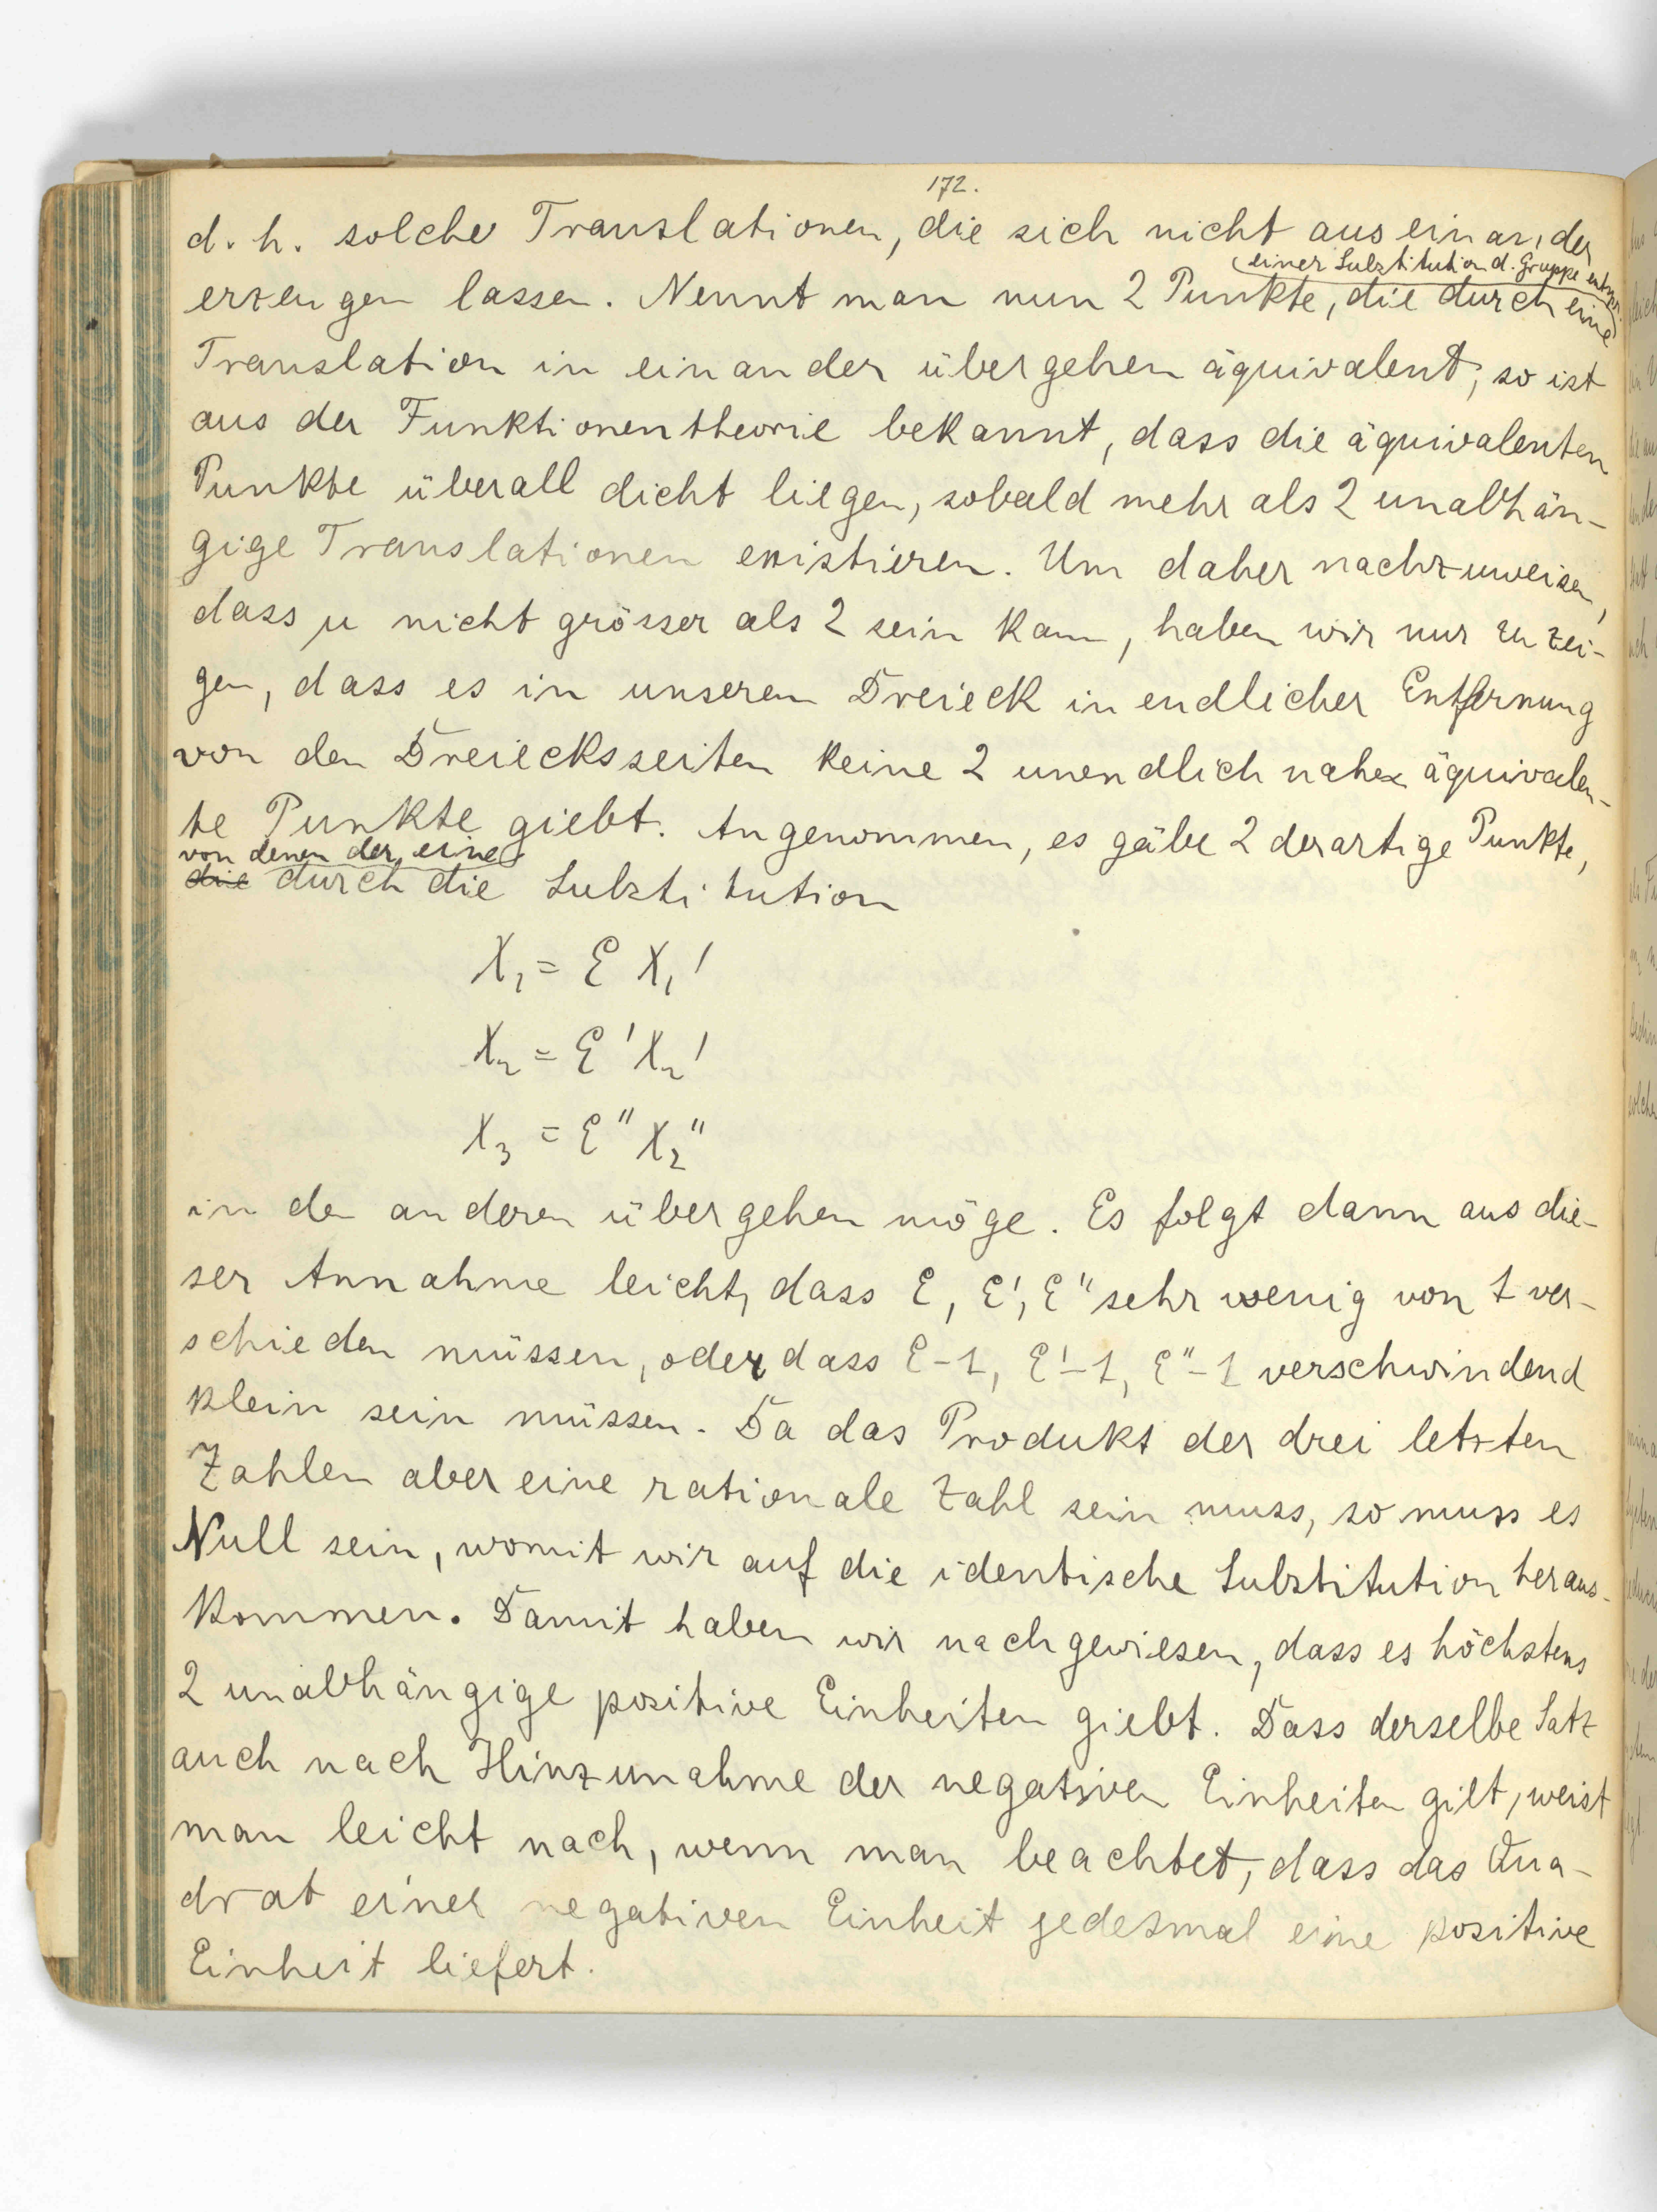 172.
d. h. solche Translationen, die sich nicht aus einander
einer Substitution d. Gruppe entspr.
erzeugen lassen. Nennt man nun 2 Punkte, die durch eine
Translation in einander übergehen äquivalent, so ist
aus der Funktionentheorie bekannt, dass die äquivalenten
Punkte überall dicht liegen, sobald mehr als 2 unabhän-
gige Translationen existieren. Um daher nachzuweisen,
dass μ nicht grösser als 2 sein kann, haben wir nur zu zei-
gen, dass es in unserem Dreieck in endlicher Entfernung
von den Dreiecksseiten keine 2 unendlich nahe äquivalen-
te Punkte giebt. Angenommen, es gäbe 2 derartige Punkte,
von denen der eine
die durch die Substitution
X₁ = ε X₁'
X₂ = ε' X₂'
X₃ = ε'' X₂''
in den anderen übergehen möge. Es folgt dann aus die-
ser Annahme leicht, dass ε, ε', ε'' sehr wenig von 1 ver-
schieden müssen, oder dass ε-1, ε'-1, ε''-1 verschwindend
klein sein müssen. Da das Produkt der drei letzten
Zahlen aber eine rationale Zahl sein muss, so muss es
Null sein, womit wir auf die identische Substitution heraus-
kommen. Damit haben wir nachgewiesen, dass es höchstens
2 unabhängige positive Einheiten giebt. Dass derselbe Satz
auch nach Hinzunahme der negativen Einheiten gilt, weist
man leicht nach, wenn man beachtet, dass das Qua-
drat einer negativen Einheit jedesmal eine positive
Einheit liefert.